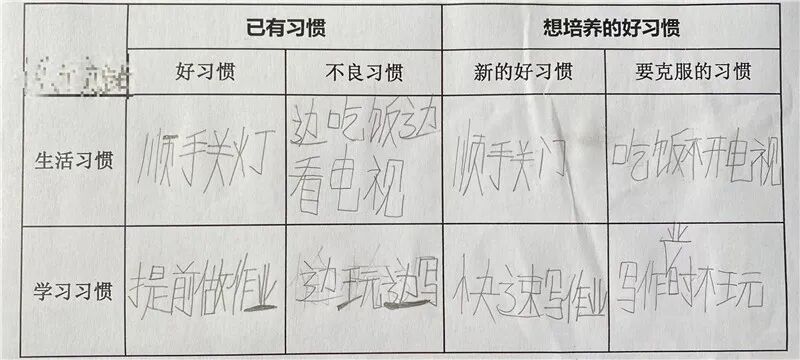 已有习惯 想培养的好习惯
好习惯 不良习惯 新的好习惯 要克服的习惯
生活习惯 顺手关灯 边吃饭边看电视 顺手关门 吃饭不开电视
学习习惯 提前做作业 边玩边写 快速写作业 写作业时不玩